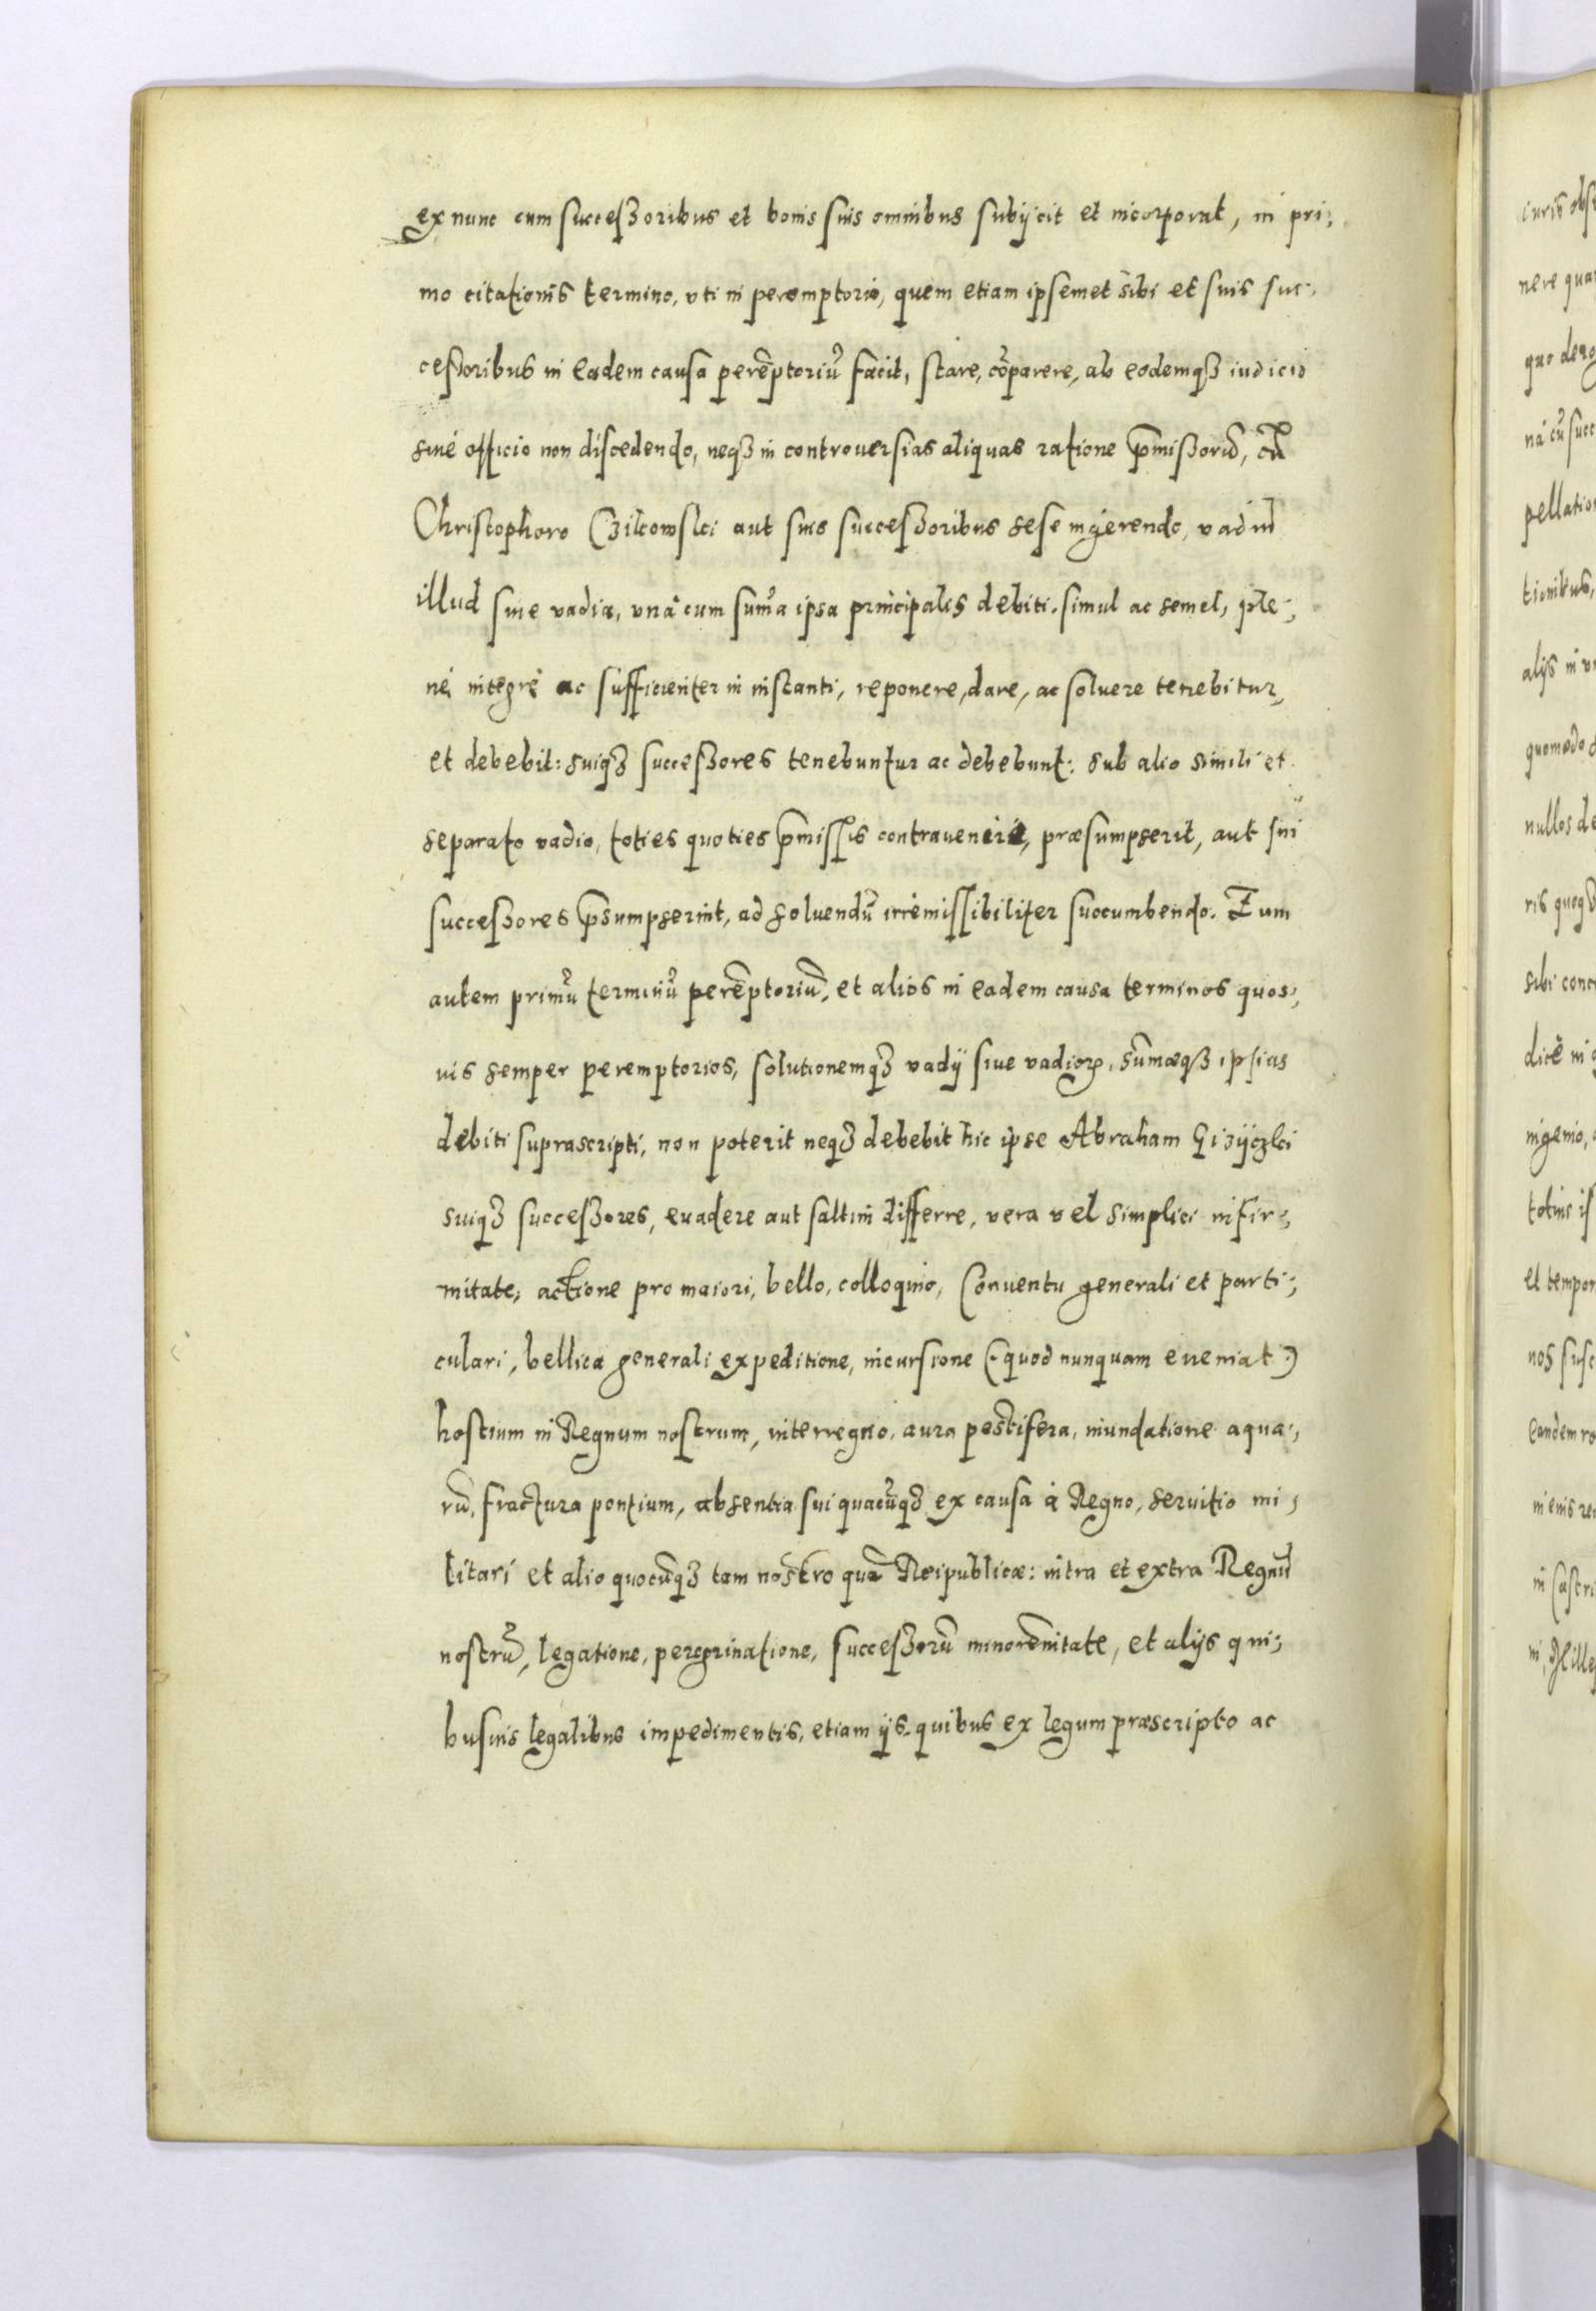 ex nunc cum successoribus et bonis suis omnibus subijcit et incorporat, in pri;
mo citationis termino, vti in peremptorio, quem etiam ipsemet sibi et suis suc;
cessoribus in eadem causa perēptoriū facit, stare, cōparere, ab eodemqȝ iudicio
siué officio non discedendo, neqȝ in controuersias aliquas ratione p̄missorū, cū
Christophoro Czilkowski aut suis successoribus sese ingerendo, vadiū
illud siue vadia, vnà cum sum̄a ipsa principalis debiti. simul ac semel, ple;
nè integrè ac sufficienter in instanti, reponere, dare, ac soluere tenebitur,
et debebit: suiqȝ successores tenebuntur ac debebunt: sub alio simili et
separato vadio, toties quoties p̄missis contrauenire, præsumpserit, aut sui
successores p̄sumpserint, ad soluendū irremissibiliter succumbendo. Eum
autem primū terminū perēptoriū, et alios in eadem causa terminos quos;
uis semper peremptorios, solutionemqȝ vadij siue vadioꝝ, sūmæqȝ ipsius
debiti suprascripti, non poterit neqȝ debebit hic ipse Abraham Gizijczki
suiqȝ successores, euadere aut saltim differre, vera vel simplici infir;
mitate, actione pro maiori, bello, colloquio, Conuentu generali et parti;
culari, bellica generali expeditione, incursione (·quod nunquam eueniat·)
hostium in Regnum nostrum, interregno, aura pestifera, inundatione aqua;
rū, fractura pontium, absentia sui quacūqȝ ex causa à Regno, seruitio mi;
litari et alio quocūqȝ tam nostro quā Reipublicæ: intra et extra Regnū
nostrū, legatione, peregrinatione, successorū minorēnitate, et alijs qui;
busuis legalibus impedimentis, etiam ijs. quibus ex legum præscripto ac
iuris obs
nere qua
quo derog
nà cū succ
pellatio
tionibus,
alijs in v
quomodo
nullos de
ris quoqȝ
sibi conc
dicè in
ingenio,
totius is
et tempor
nos susc
eandem ro
in Castri